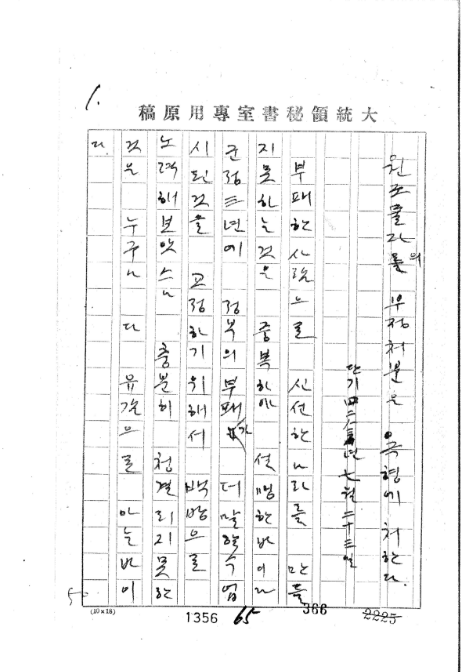 1.
大統領秘書室專用原稿
원조물자들의 부정처분은 극형에 처한다.
단기四二八 년 七월 二十三일
부패한 사람으로 신선한 나라를 만들
지 못하는 것은 중복하야 설명한 바이나
군정三년에 정부의 부패가 더 말할 수 없
시 된 것을 교정하기 위해서 백방으로
노력해 보앗스나 충분히 청결되지 못한
것은 누구나 다 유감으로 아는 바이
다.
50
(10×18)
1356
65
366
2225